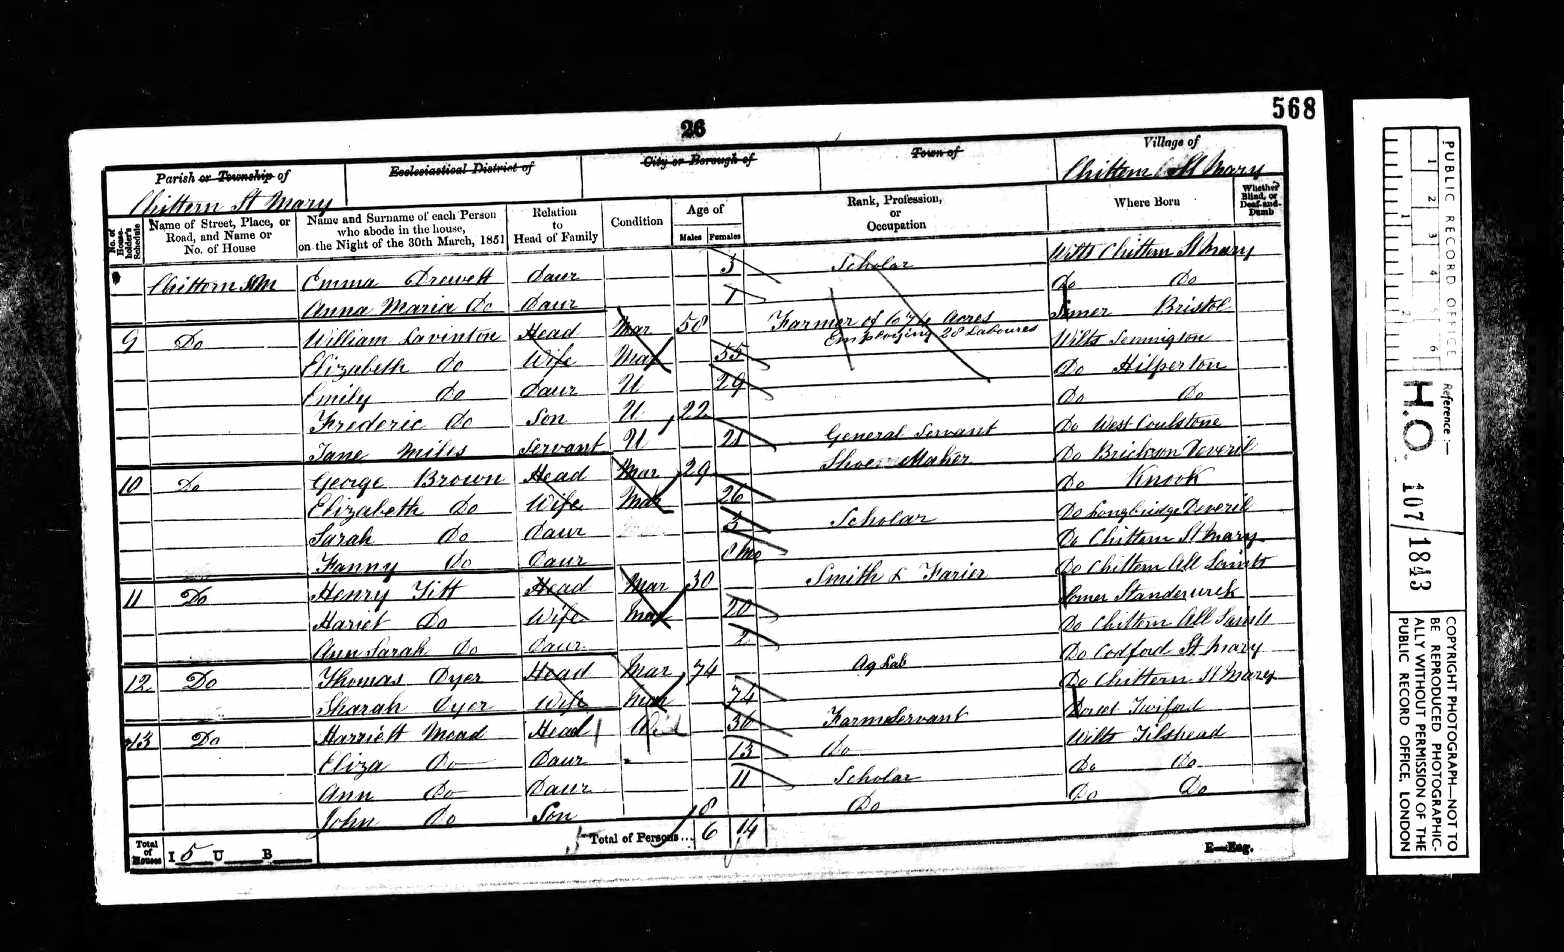 568
26
Parish or Township of
Ecclesiastical District of
City or Borough of
Town of
Village of
Chittern St Mary
Chittern St Mary
No. of House-holder's Schedule
Name of Street, Place, or Road, and Name or No. of House
Name and Surname of each Person who abode in the house, on the Night of the 30th March, 1851
Relation to Head of Family
Condition
Age of
Males Females
Rank, Profession, or Occupation
Where Born
Whether Blind, or Deaf-and-Dumb
Chittern St M Emma Drewett Daur 3 Scholar Wilts Chittern St Mary
Anna Maria Do Daur 1 Do Do
9 Do William Lavinton Head Mar 58 Farmer of Acres Employing 28 Laboures Somer Bristol
Elizabeth Do Wife Mar 55 Wilts Semmigton
Emily Do Daur U 29 Do Hilperton
Frederic Do Son U 22 Do Do
Jane Miles Servant U 21 General Servant Do West Coulstone
10 Do George Brown Head Mar 29 Shoe Maker Do Brickson Deveril
Elizabeth Do Wife Mar 26 Do Knook
Sarah Do Daur 3 Scholar Do Longbridge Deveril
Fanny Do Daur 8 Mo Do Chittern St Mary
11 Do Henry Titt Head Mar 30 Smith & Farier Do Chittern All Saints
Hariet Do Wife Mar 20 Somer Standerwick
Ann Sarah Do Daur 2 Do Chittern All Saints
12 Do Thomas Dyer Head Mar 74 Ag Lab Do Codford St Mary
Sharah Dyer Wife Mar 74 Do Chittern St Mary
13 Do Harriett Mead Head 36 Farm Servant Dorset Twiford
Eliza Do Daur 13 Do Wilts Tilshead
Ann Do Daur 11 Scholar Do Do
John Do Son 8 Do Do Do
Total of Houses I 5 U B
Total of Persons... 6 14
E—Eng.
PUBLIC RECORD OFFICE
1 2 3 4 5 6
Reference :—
H.O. 107/1843
COPYRIGHT PHOTOGRAPH—NOT TO
BE REPRODUCED PHOTOGRAPHIC-
ALLY WITHOUT PERMISSION OF THE
PUBLIC RECORD OFFICE, LONDON